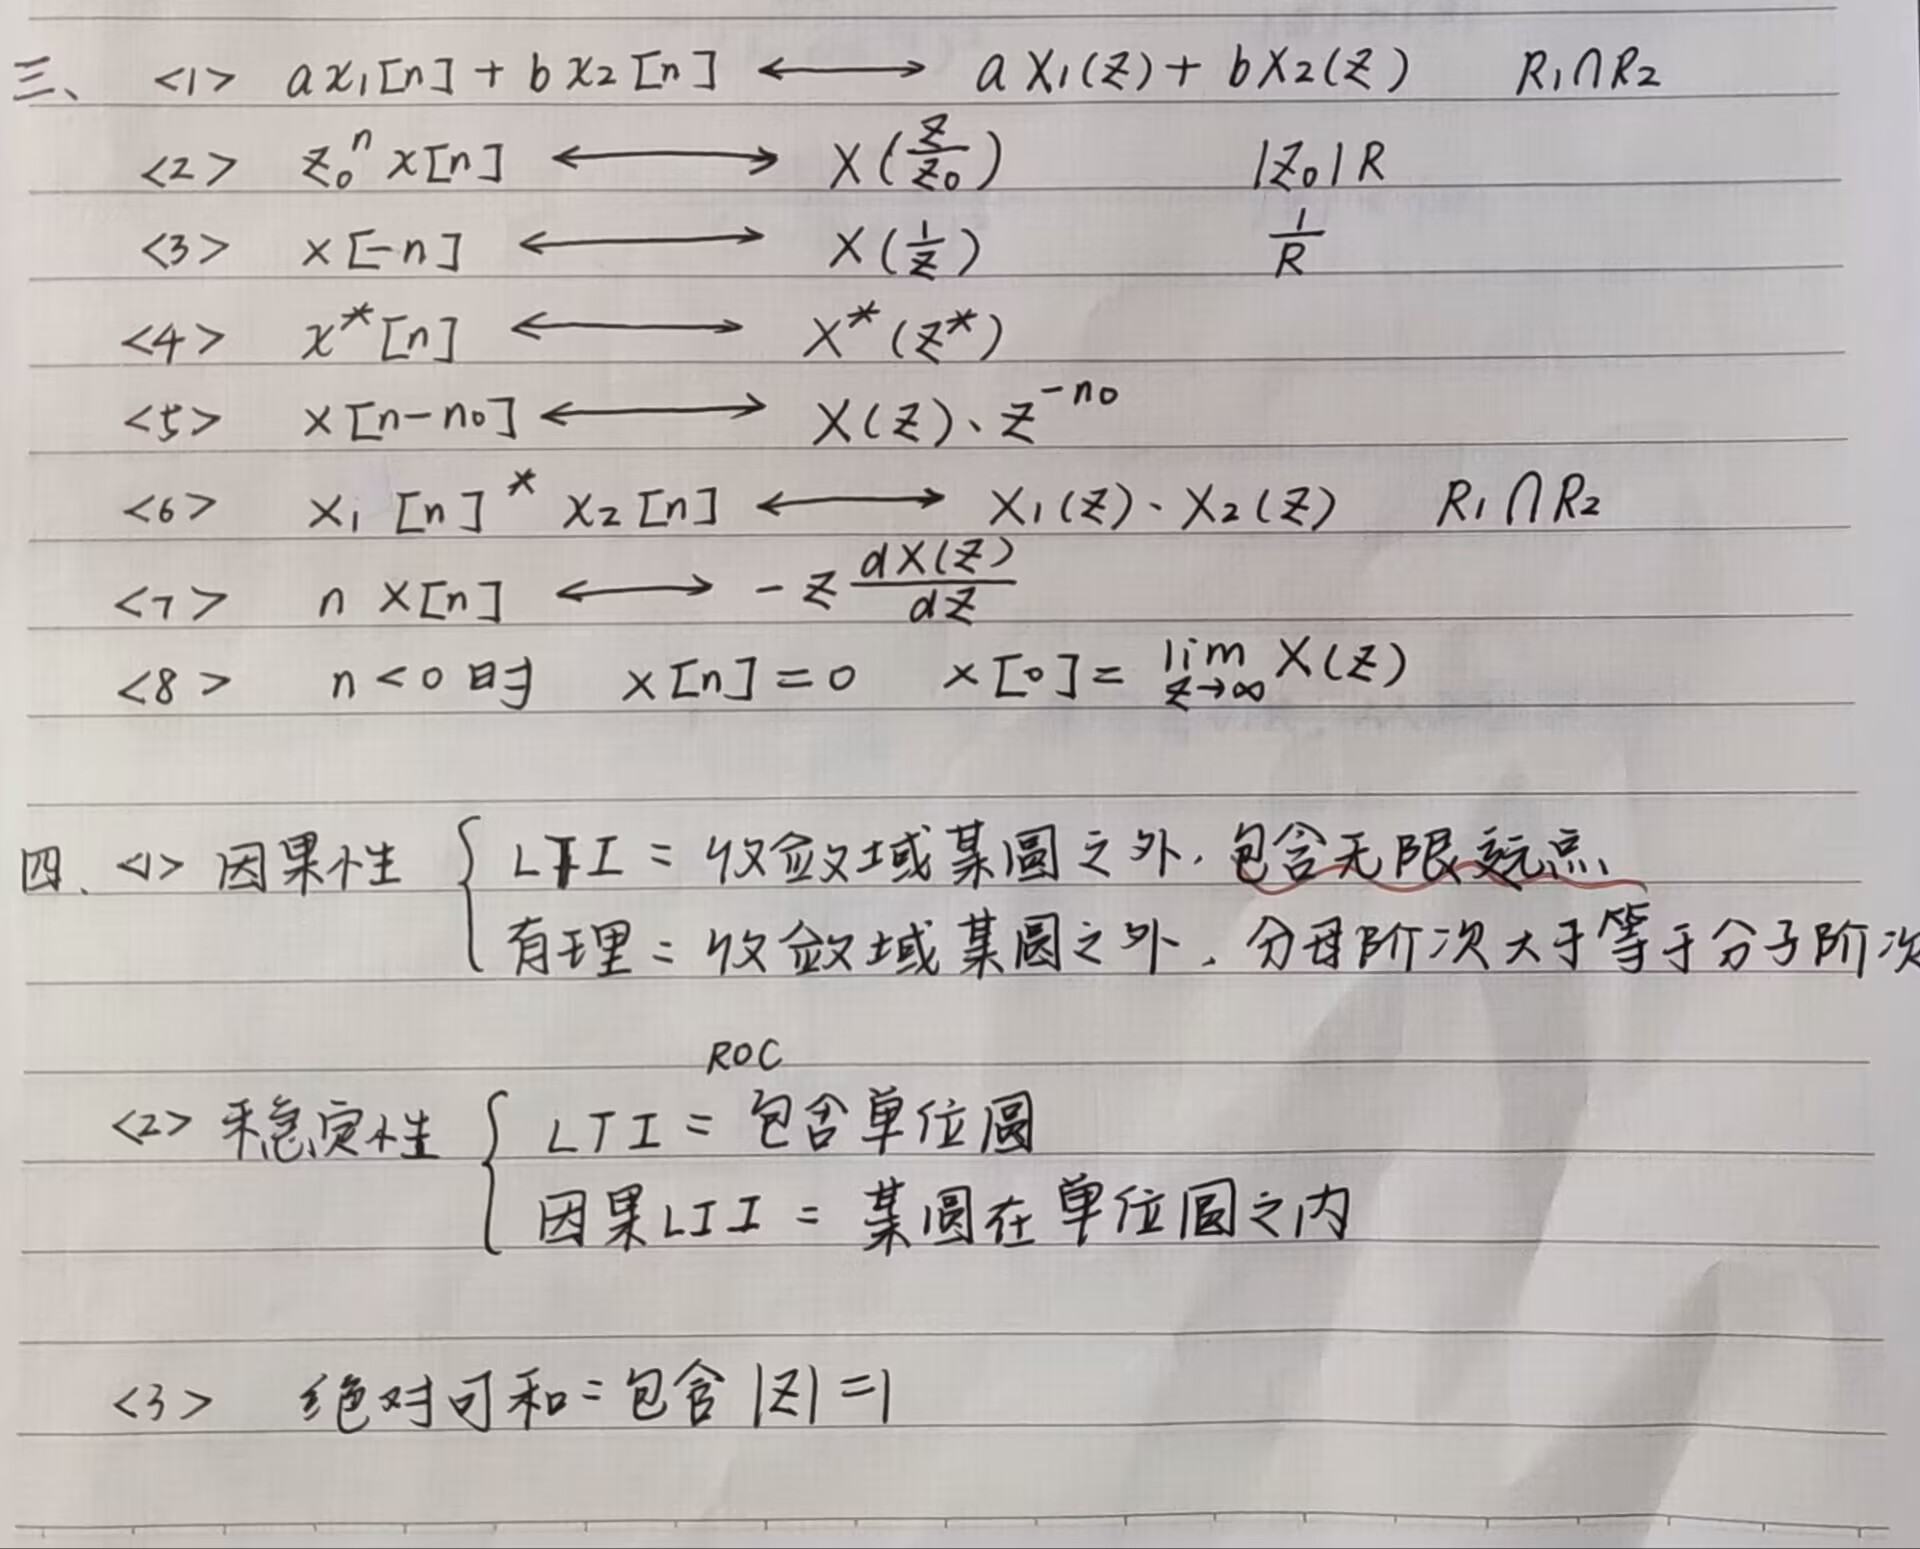 三、 <1> ax₁[n] + bx₂[n] ⟷ aX₁(z) + bX₂(z) R₁∩R₂
<2> z₀ⁿ x[n] ⟷ X(z/z₀) |z₀|R
<3> x[-n] ⟷ X(1/z) 1/R
<4> x*[n] ⟷ X*(z*)
<5> x[n-n₀] ⟷ X(z)·z^(-n₀)
<6> x₁[n] * x₂[n] ⟷ X₁(z)·X₂(z) R₁∩R₂
<7> n x[n] ⟷ -z dX(z)/dz
<8> n<0时 x[n]=0 x[0]= lim z→∞ X(z)
四、<1> 因果性 { LTI = 收敛域某圆之外, 包含无限远点
有理 = 收敛域某圆之外, 分母阶次大于等于分子阶次
ROC
<2> 稳定性 { LTI = 包含单位圆
因果LTI = 某圆在单位圆之内
<3> 绝对可和 = 包含 |z|=1